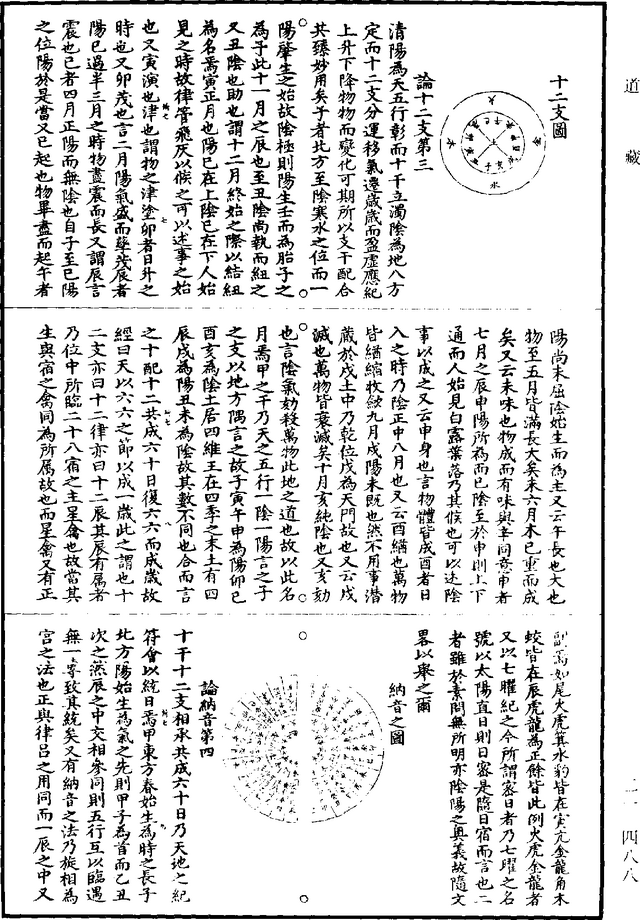 道藏
十二支圖
論十二支第三
清陽為天五行彰而十千立濁陰為地八方
定而十二支分運移氣遷歲歲而盈虛應紀
上升下降物物而變化可期所以支干配合
共臻妙用矣子者北方至陰寒水之位而一
陽肇生之始故陰極則陽生壬而為胎子之
為子此十一月之辰也至丑陰尚執而紐之
又丑陰也助也謂十二月終始之際以結紐
為名焉寅正月也陽已在上陰已在下人始
見之時故律管飛灰以候之可以述事之始
也又寅演也津也謂物之津塗卯者日升之
時也又卯茂也言二月陽氣盛而孳茂辰者
陽已過半三月之時物盡震而長又謂辰言
震也巳者四月正陽而無陰也自子至巳陽
之位陽於是當又巳起也物畢盡而起午者
陽尚未屈陰始生而為主又云午長也大也
物至五月皆滿長大矣未六月木已重而成
矣又云未味也物成而有味與辛同意申者
七月之辰申陽所為而已陰至於申則上下
通而人始見白露葉落乃其候也可以述陰
事以成之又云申身也言物體皆成酉者日
入之時乃陰正中八月也又云酉緧也萬物
皆緧縮收斂九月戌陽未既也然不用事潛
藏於戌土中乃乾位戌為天門故也又云戌
滅也萬物皆衰滅矣十月亥純陰也又亥劾
也言陰氣劾殺萬物此地之道也故以此名
月焉甲之干乃天之五行一陰一陽言之子
之支以地方隅言之故子寅午申為陽卯巳
酉亥為陰土居四維王在四季之末土有四
辰戌為陽丑未為陰故其數不同也合而言
之十配十二共成六十日復六六而成歲故
經曰天以六六之節以成一歲此之謂也十
二支亦曰十二律亦曰十二辰其辰有屬者
乃位中所臨二十八宿之主星禽也故當其
生與宿之禽同為所屬故也而星禽又有正
副焉如尾火虎箕水豹皆在寅亢金龍角木
蛟皆在辰虎龍為正餘皆此例火虎金龍者
又以七曜紀之今所謂密日者乃七曜之名
號以太陽直日則日密是隨日宿而言也二
者雖於素問無所明亦陰陽之奧義故隨文
畧以舉之爾
納音之圖
論納音第四
十干十二支相承共成六十日乃天地之紀
符會以統日焉甲東方春始生為時之長子
北方陽始生為氣之先則甲子為首而乙丑
次之然辰之中交相參同則五行互以臨遇
無一專致其統矣又有納音之法乃旋相為
宮之法也正與律呂之用同而一辰之中又
二一 四八八